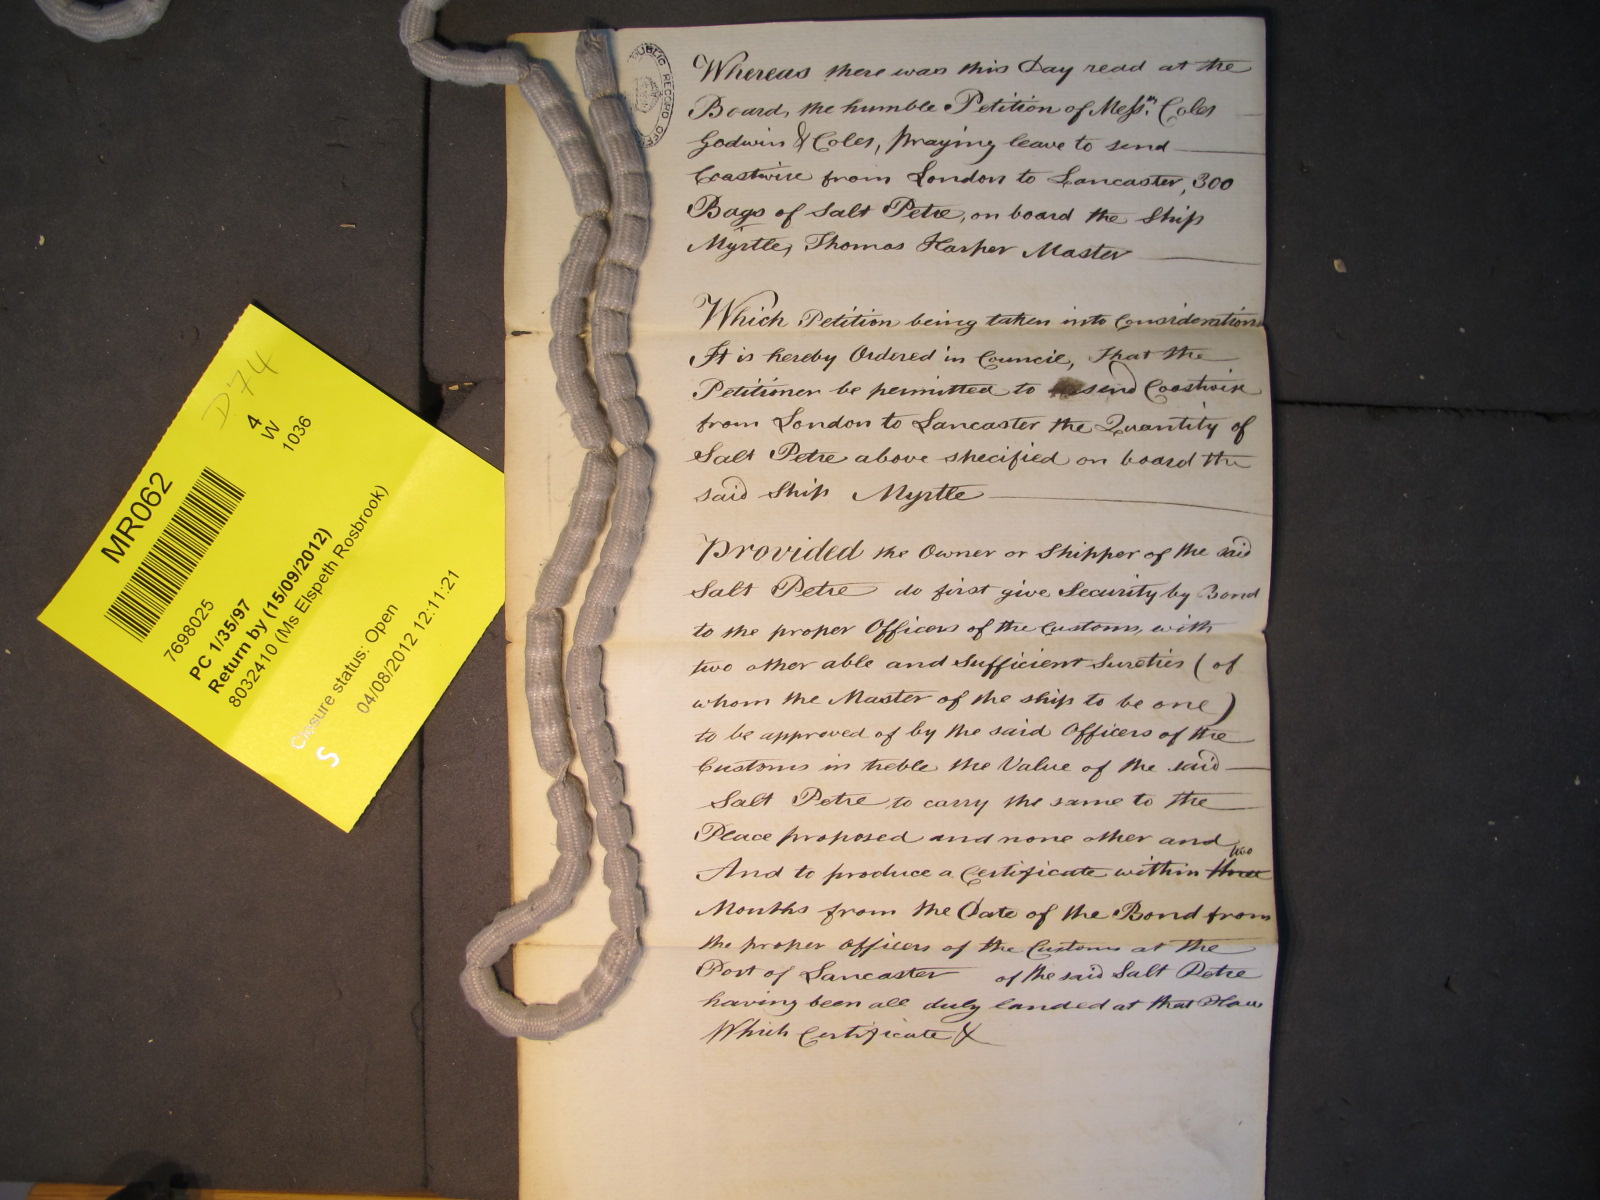 Whereas there was this Day read at the
Board, the humble Petition of Mess.rs Coles
Godwin & Coles, praying leave to send
Coastwise from London to Lancaster, 300
Bags of Salt Petre, on board the Ship
Myrtle, Thomas Harper Master
Which Petition being taken into Consideration
It is hereby Ordered in Council, That the
Petitioner be permitted to send Coastwise
from London to Lancaster the Quantity of
Salt Petre above specified on board the
said Ship Myrtle
Provided the Owner or Shipper of the said
Salt Petre do first give Security by Bond
to the proper Officers of the Customs, with
two other able and sufficient Sureties (of
whom the Master of the ship to be one)
to be approved of by the said Officers of the
Customs in treble the Value of the said
Salt Petre to carry the same to the
Place proposed and none other and
two
And to produce a Certificate within three
Months from the Date of the Bond from
the proper Officers of the Customs at the
Port of Lancaster of the said Salt Petre
having been all duly landed at that Place
Which Certificate &
PUBLIC RECORD OFF
D'74
4
W
1036
MR062
7698025
PC 1/35/97
Return by (15/09/2012)
8032410 (Ms Elspeth Rosbrook)
Closure status: Open
04/08/2012 12:11:21
S